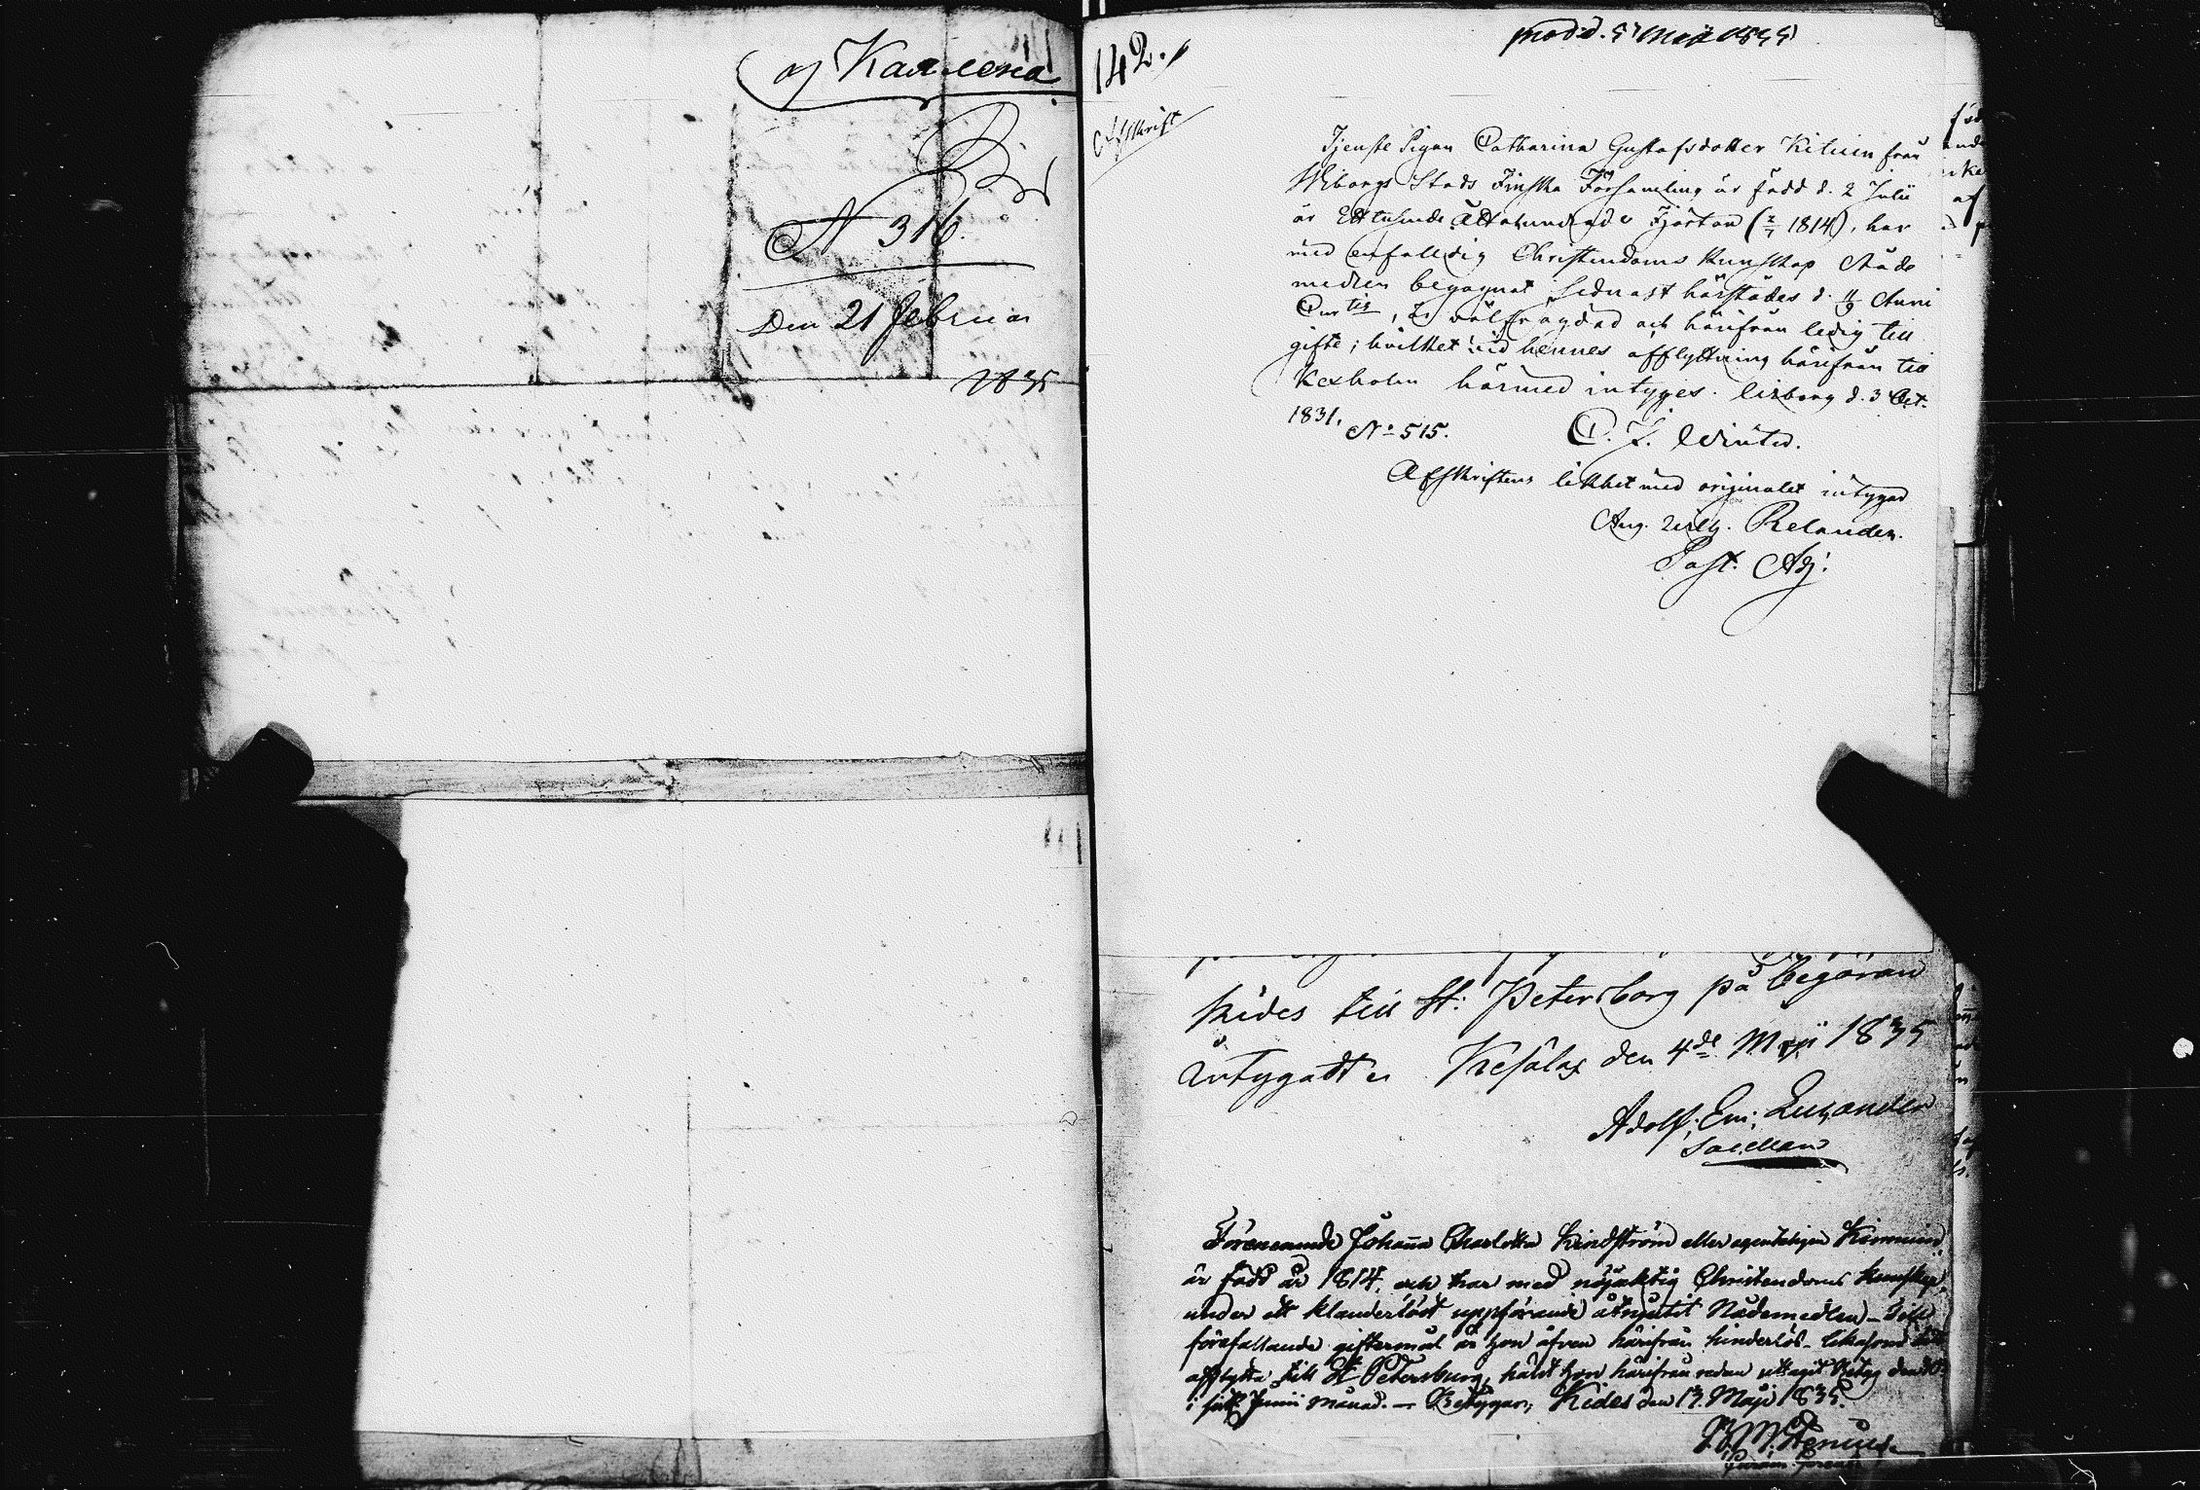 af Kallena
N 316.
Den 21 Februar
1835
142.
Afskrift
prod d. 5 Maii 1835
Tjenste Pigan Catharina Gustafsdotter Kitunin från
Wiborgs Stads Finska Församling är född d. 2 Julii
år Ett tusende Åttahundrade Fjorton (2/7 1814), har
med enfaldig Christendoms Kunskap Nåde
medlen begagnat sednast härstädes d. 11/9 Anni
Curtis, är välfrägdad och härifrån ledig till
gifte; hvilket vid hennes afflyttning härifrån till
Kexholm härmed intyges. Wiborg d. 3 Oct.
1831.
No 515.
Winter.
Afskriftens likhet med originalet intygad
Aug. Wilh. Relander.
Past. Adj:
Kides till St: Petersborg på begäran
Intygadt är Kesälax den 4de Maji 1835
Adolf. Em: Lucander
Sacellan
Förenemnde Johanna Charlotta Lindström eller egenteligen Kimmin
är född år 1814, och har med nöjaktig Christendoms kunskap,
under ett klanderlöst uppförande åtnjutit Nådemedlen – Till
förefallande giftermål är hon äfven härifrån hinderlös – likasom till
afflytta till St Petersburg, hälst hon härifrån redan uttagit Betyg den
i sistl. Junii månad. – Betygar, Kides den 13 Maji 1835.